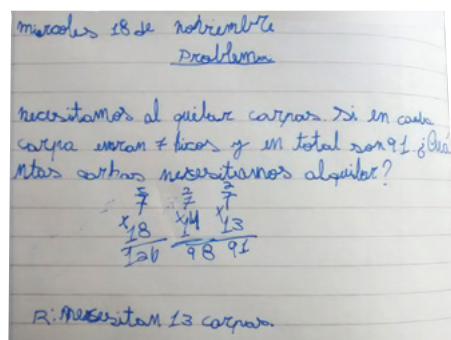 miercoles 18 de nobiembre
Problema
necesitamos al quilar carpas. Si en cada
carpa entran 7 chicos y en total son 91. ¿Cuá
ntas carpas nesesitamos alquilar?
5 2 2
7 7 7
x18 x14 x13
126 98 91
R: nesesitan 13 carpas.